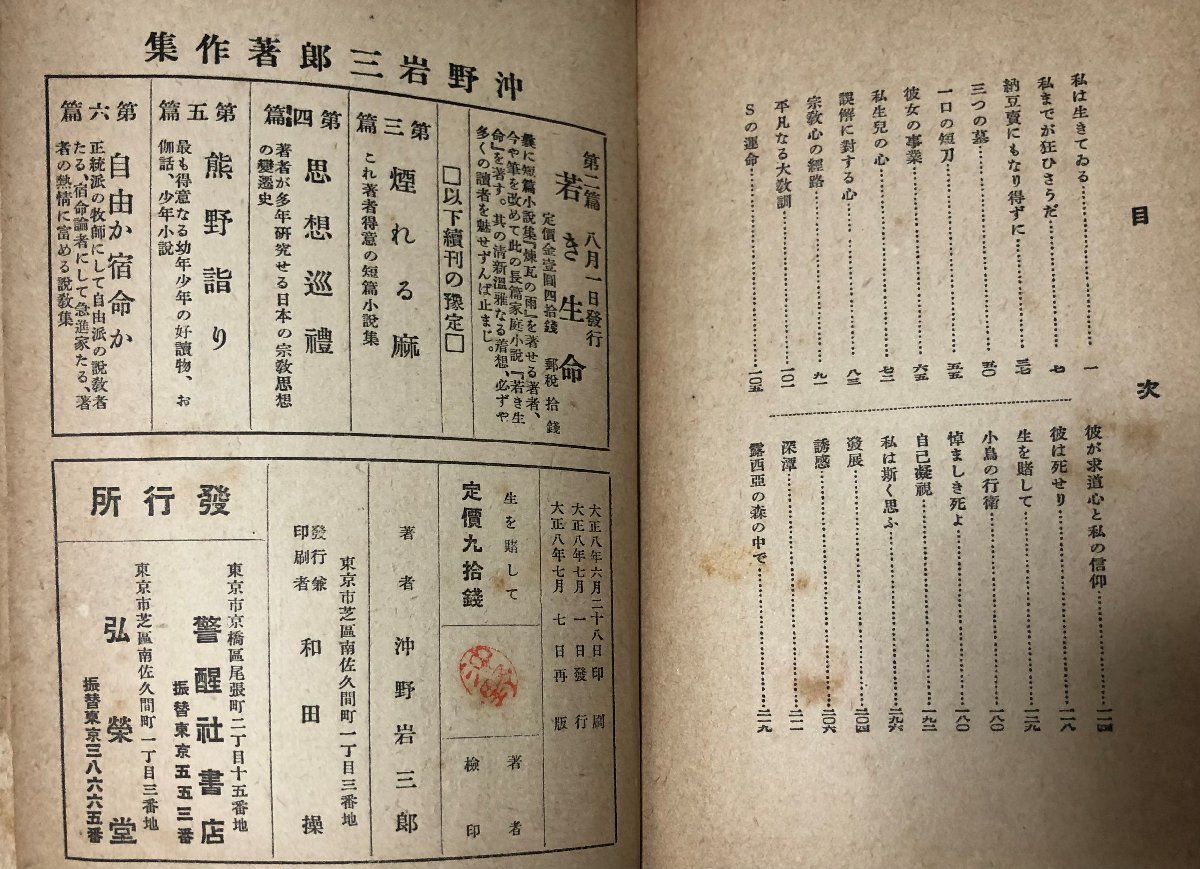 目次
私は生きてゐる 一
私までが狂ひさうだ 七
納豆賣にもなり得ずに 三七
三つの墓 五〇
一口の短刀 五五
彼女の事業 六五
私生兒の心 七二
誤解に對する心 八三
宗敎心の經路 九一
平凡なる大敎訓 一〇一
Sの運命 一〇五
彼が求道心と私の信仰 一一四
彼は死せり 一一八
生を賭して 一二九
小鳥の行衛 一八〇
悼ましき死よ 一八〇
自己凝視 一九二
私は斯く思ふ 二九六
發展 二〇四
誘惑 二〇六
深潭 二一一
露西亞の森の中で 二一九
沖野岩三郎著作集
第二篇 八月一日發行
若き生命
定價金壹圓四拾錢 郵稅拾錢
曩に短篇小說集『煉瓦の雨』を著せる著者、
今や筆を改めて此の長篇家庭小說『若き生
命』を著す。其の淸新溫雅なる着想、必ずや
多くの讀者を魅せずんば止まじ。
□以下續刊の豫定□
第三篇 煙れる麻
これ著者得意の短篇小說集
第四篇 思想巡禮
著者が多年硏究せる日本の宗敎思想
の變遷史
第五篇 熊野詣り
最も得意なる幼年少年の好讀物、お
伽話、少年小說
第六篇 自由か宿命か
正統派の牧師にして自由派の說敎者
たる、宿命論者にして急進家たる、著
者の熱情に富める說敎集
大正八年六月二十八日印刷
大正八年七月一日發行
大正八年七月七日再版
生を賭して
定價九拾錢
著者檢印
著者 沖野岩三郎
東京市芝區南佐久間町一丁目三番地
發行兼印刷者 和田操
發行所
東京市京橋區尾張町二丁目十五番地
警醒社書店
振替東京五五三番
東京市芝區南佐久間町一丁目三番地
弘榮堂
振替東京三八六六五番